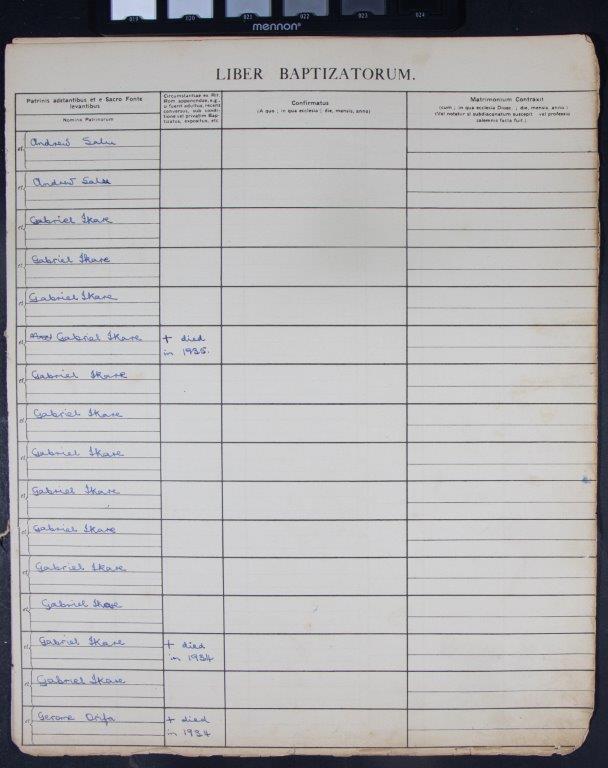 019 020 021 022 023 024
mennon
LIBER BAPTIZATORUM.
Patrinis adstantibus et e Sacro Fonte
levantibus
Nomina Patrinorum
Circumstantiae ex Rit.
Rom. apponendae, e.g.,
si fuerit adultus, recens
conversus, sub condi-
tione vel privatim Bap-
tizatus, expositus, etc.
Confirmatus
(A quo ; in qua ecclesia ; die, mensis, anno)
Matrimonium Contraxit
(cum ; in qua ecclesia Dioec. ; die, mensis, anno :
(Vel notatur si subdiaconatum suscepit vel professio
solemnis facta fuit.)
et Andrew Salu
et Andrew Salu
et Gabriel Ikare
et Gabriel Ikare
et Gabriel Ikare
et Gabriel Ikare + died
in 1935.
et Gabriel Ikare
et Gabriel Ikare
et Gabriel Ikare
et Gabriel Ikare
et Gabriel Ikare
et Gabriel Ikare
et Gabriel Ikare
et Gabriel Ikare + died
in 1934
et Gabriel Ikare
et Gerome Orifa + died
in 1934